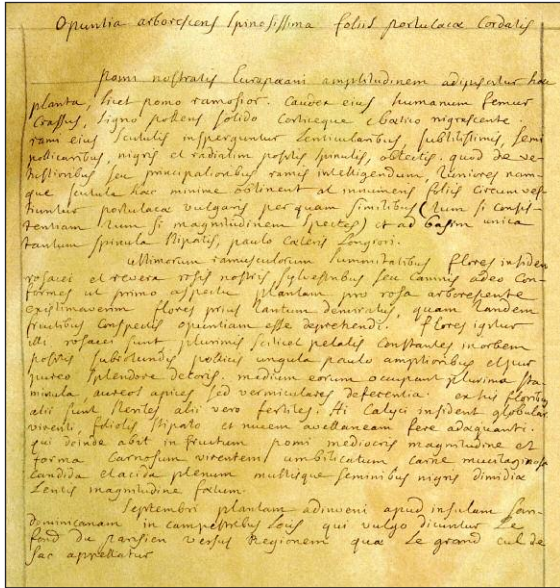 Opuntia arborescens spinosissima foliis portulacae cordatis
Pomi nostratis Europaeani amplitudinem adipiscitur haec
planta, licet pomo ramosior. Caudex eius humanum femur
crassus, ligno pollens solido corticeque nigrescente.
rami eius scutulis insperguntur lenticularibus, subtilissimis, semi
pollicaribus, nigris et radiatim positis spinulis, obtectis. quod de ve-
tustioribus seu principalioribus ramis intelligendum, Iuniores nam-
que scutula haec minime obtinent at innumeris foliis circumves-
tiuntur portulacae vulgaris perquam similibus (tum si consis-
tentiam tum si magnitudinem spectes) et ad basim unica
tantum spinula stipatis, paulo caeteris longiori.
ultimorum ramusculorum summitatibus flores insident
rosacei et revera rosis nostris sylvestribus seu caninis adeo con-
formes ut primo aspectu plantam pro rosa arborescente
existimaverim flores prius tantum demiratus, quam tandem
fructibus conspectis opuntiam esse deprehendi. flores igitur
illi rosacei sunt plurimis scilicet petalis constantes in orbem
positis subrotundis pollicis ungula paulo amplioribus et pur
pureo splendore decoris. medium eorum occupant plurima sta-
minula, aureos apices sed vermiculares deferentia. ex his floribus
alii sunt steriles alii vero fertiles. Hi calyci insident globulari
virenti, foliolis stipato et nucem avellaneam fere adaequanti.
qui deinde abit in fructum pomi mediocris magnitudine et
forma carnosum virentem umbilicatum carne mucilaginosa
candida et acida plenum multisque seminibus nigris dimidiae
lentis magnitudine faetum.
Septembri plantam adinveni apud insulam San-
dominicanam in campestribus locis qui vulgo dicuntur Le
fond du parisien versus Regionem quae Le grand cul de
sac appellatur